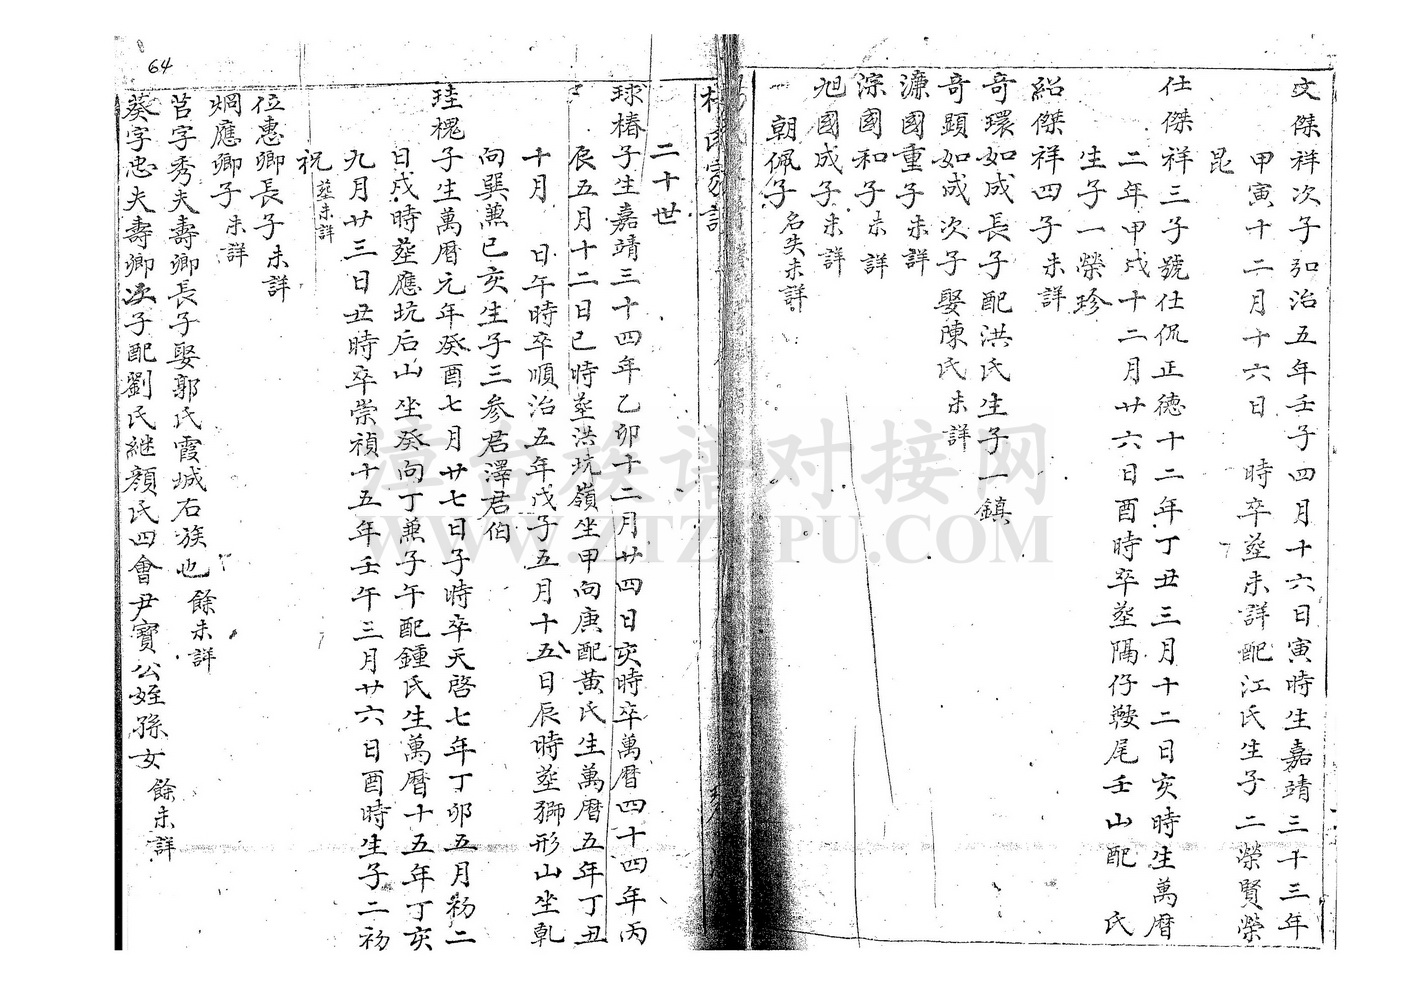 文傑祥次子弘治五年壬子四月十六日寅時生嘉靖三十三年
甲寅十二月十六日 時卒塟未詳配江氏生子二榮賢榮
昆
仕傑祥三子號仕侃正德十二年丁丑三月十二日亥時生萬曆
二年甲戌十二月廿六日酉時卒塟隔仔鞍尾壬山配 氏
生子一榮珍
紹傑祥四子未詳
奇環如成長子配洪氏生子一鎮
奇顕如成次子娶陳氏未詳
濂國重子未詳
淙國和子未詳
旭國成子未詳
一朝佩子名失未詳
二十世
球椿子生嘉靖三十四年乙卯十二月廿四日亥時卒萬曆四十四年丙
辰五月十二日巳時塟洪坑嶺坐甲向庚配黃氏生萬曆五年丁丑
十月 日午時卒順治五年戊子五月十五日辰時塟獅形山坐乹
向巽蒹巳亥生子三参君澤君伯
珪槐子生萬曆元年癸酉七月廿七日子時卒天啓七年丁卯五月初二
日戌時塟應坑后山坐癸向丁蒹子午配鍾氏生萬曆十五年丁亥
九月廿三日丑時卒崇禎十五年壬午三月廿六日酉時生子二初
祝塟未詳
位惠卿長子未詳
烱應卿子未詳
莒字秀夫壽卿長子娶郭氏霞城右族也餘未詳
葵字忠夫壽卿次子配劉氏継顏氏四會尹寶公姪孫女餘未詳
64
漳台族谱对接网
WWW.ZTZUPU.COM